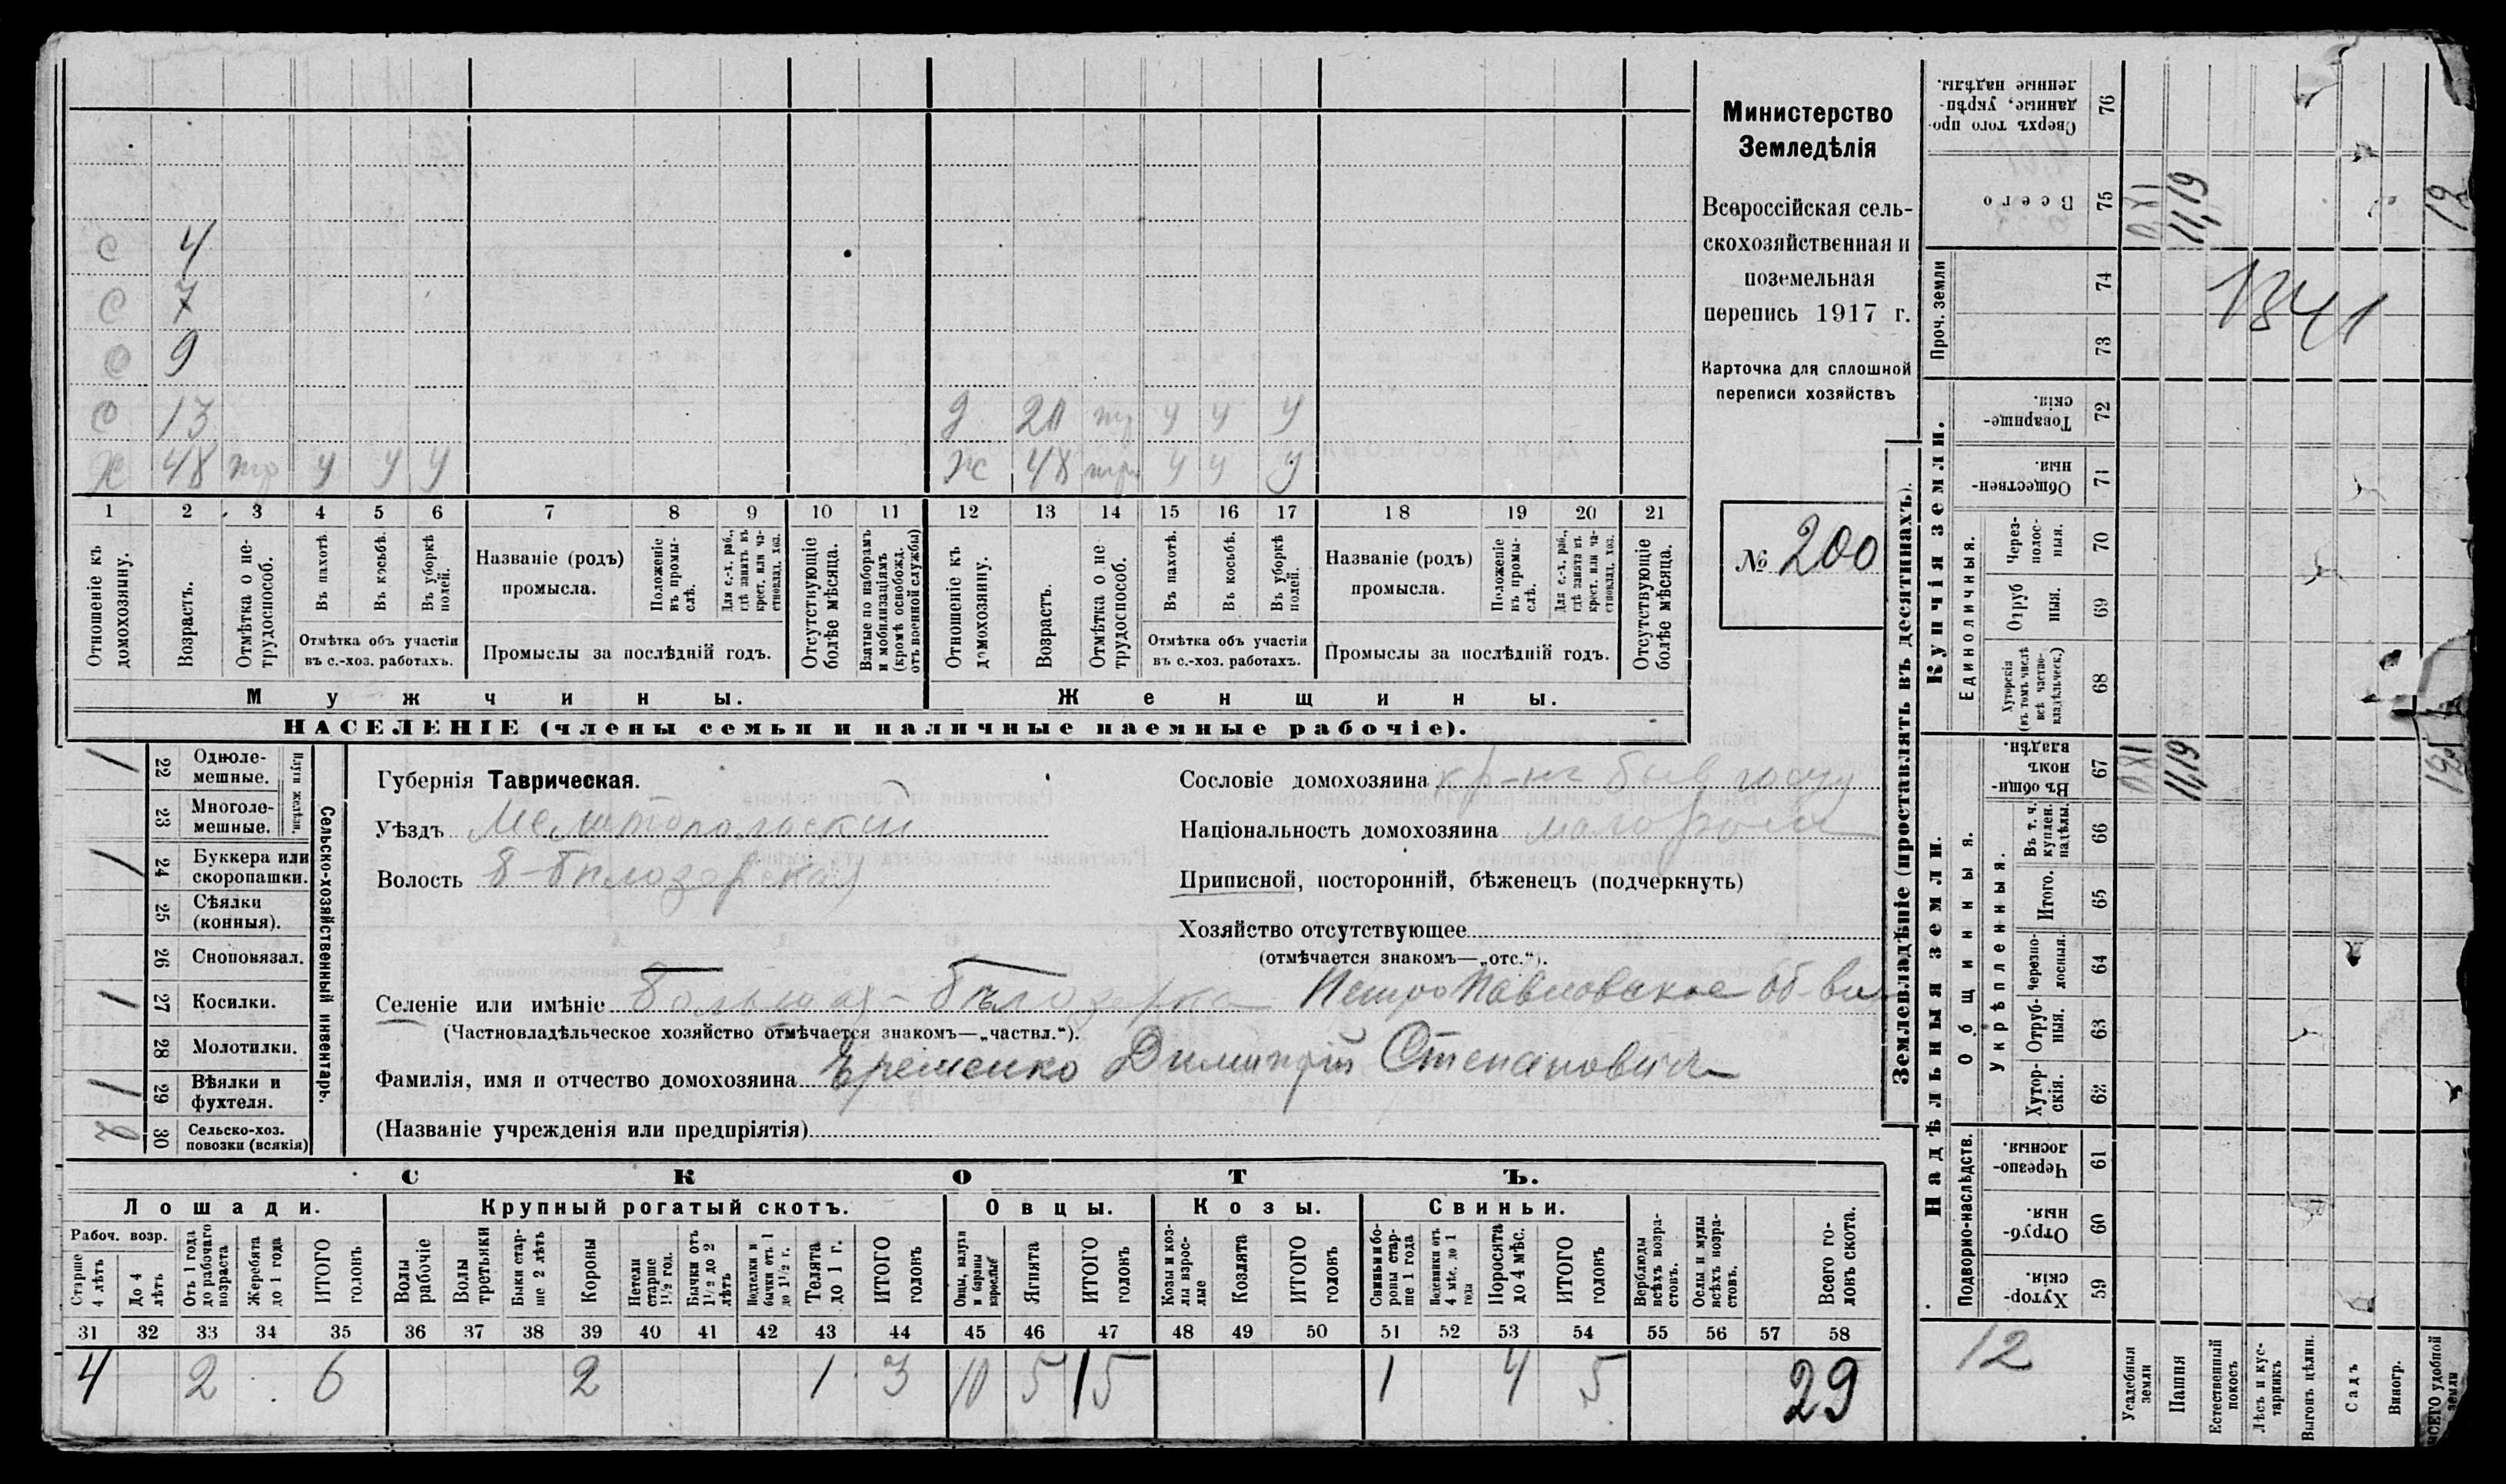 Министерство
Земледѣлія
Всероссійская сель-
скохозяйственная и
поземельная
перепись 1917 г.
Карточка для сплошной
переписи хозяйствъ
№ 200
с 4
с 7
с 9
с 13 д 20 тр у у у
х 48 тр у у у ж 48 тр у у у
1 2 3 4 5 6 7 8 9 10 11 12 13 14 15 16 17 18 19 20 21
Отношеніе къ домохозяину.
Возрастъ.
Отмѣтка о не-трудоспособ.
Въ пахотѣ.
Въ косьбѣ.
Въ уборкѣ полей.
Отмѣтка объ участіи
въ с.-хоз. работахъ.
Названіе (родъ)
промысла.
Положеніе въ промы-слѣ.
Для с.-х. раб., гдѣ занятъ въ крест. или ча-стновлад. хоз.
Промыслы за послѣдній годъ.
Отсутствующіе болѣе мѣсяца.
Взятые по наборамъ и мобилизаціямъ (кромѣ освобожд. отъ военной службы)
Отношеніе къ домохозяину.
Возрастъ.
Отмѣтка о не трудоспособ.
Въ пахотѣ.
Въ косьбѣ.
Въ уборкѣ полей.
Отмѣтка объ участіи
въ с.-хоз. работахъ.
Названіе (родъ)
промысла.
Положеніе въ промы-слѣ.
Для с.-х. раб., гдѣ занята въ крест. или ча-стновлад. хоз.
Промыслы за послѣдній годъ.
Отсутствующіе болѣе мѣсяца.
Мужчины. Женщины.
НАСЕЛЕНІЕ (члены семьи и наличные наемные рабочіе).
Сельско-хозяйственный инвентарь.
Плуги желѣзн.
1 22 Однолемешные.
23 Многолемешные.
1 24 Буккера или скоропашки.
25 Сѣялки (конныя).
26 Сноповязал.
1 27 Косилки.
28 Молотилки.
1 29 Вѣялки и фухтеля.
2 30 Сельско-хоз. повозки (всякія)
Губернія Таврическая.
Уѣздъ Мелитопольскій
Волость Б-Бѣлозерская
Сословіе домохозяина кр-нъ быв госуд
Національность домохозяина малоросъ
Приписной, посторонній, бѣженецъ (подчеркнуть)
Хозяйство отсутствующее
(отмѣчается знакомъ—„отс.“).
Селеніе или имѣніе Большая-Бѣлозерка Петропавловское об-во
(Частновладѣльческое хозяйство отмѣчается знакомъ—„частвл.“).
Фамилія, имя и отчество домохозяина Еременко Димитрій Степановичъ
(Названіе учрежденія или предпріятія)
СКОТЪ.
Лошади. Крупный рогатый скотъ. Овцы. Козы. Свиньи.
Рабоч. возр.
Старше 4 лѣтъ
До 4 лѣтъ
Отъ 1 года до рабочаго возраста
Жеребята до 1 года
ИТОГО головъ
Волы рабочіе
Волы третьяки
Быки стар-ше 2 лѣтъ
Коровы
Нетели старше 1½ год.
Бычки отъ 1½ до 2 лѣтъ
Телята до 1 г.
ИТОГО головъ
Овцы, валухи и бараны взрослые
Ягнята
ИТОГО головъ
Козы и коз-лы взрос-лые
Козлята
ИТОГО головъ
Свиньи и бо-ровы стар-ше 1 года
Подсвинки отъ 4 мѣс. до 1 года
Поросята до 4 мѣс.
ИТОГО головъ
Верблюды всѣхъ возра-стовъ.
Ослы и мулы всѣхъ возра-стовъ.
Всего го-ловъ скота.
31 32 33 34 35 36 37 38 39 40 41 42 43 44 45 46 47 48 49 50 51 52 53 54 55 56 57 58
4 2 6 2 1 3 10 5 15 1 4 5 29
Землевладѣніе (проставлять въ десятинахъ).
Купчія земли.
Надѣльныя земли.
Сверхъ того про-данные, укрѣп-ленные надѣлы. 76
Всего 75 0,81 11,19 12
Проч. земли 74 73
1841
Товарище-скія. 72
Обществен-ныя. 71
Единоличныя.
Через-полос-ныя. 70
Отруб ныя. 69
Хуторскія (въ томъ числѣ всѣ частно-владѣльческ.) 68
Въ общин-номъ владѣн. 67 0,81 11,19 12
Общинныя.
Укрѣпленныя.
Въ т. ч. куплен. надѣлы. 66
Итого. 65
Черезпо-лосныя. 64
Отруб-ныя. 63
Хутор-скія. 62
Подворно-наслѣдств.
Черезпо-лосныя. 61
Отруб-ныя. 60
Хутор-скія. 59
12
Усадебныя земли
Пашня
Естественный покосъ
Лѣсъ и кус-тарникъ
Выгонъ цѣлин.
Садъ
Виногр.
ВСЕГО удобной земли